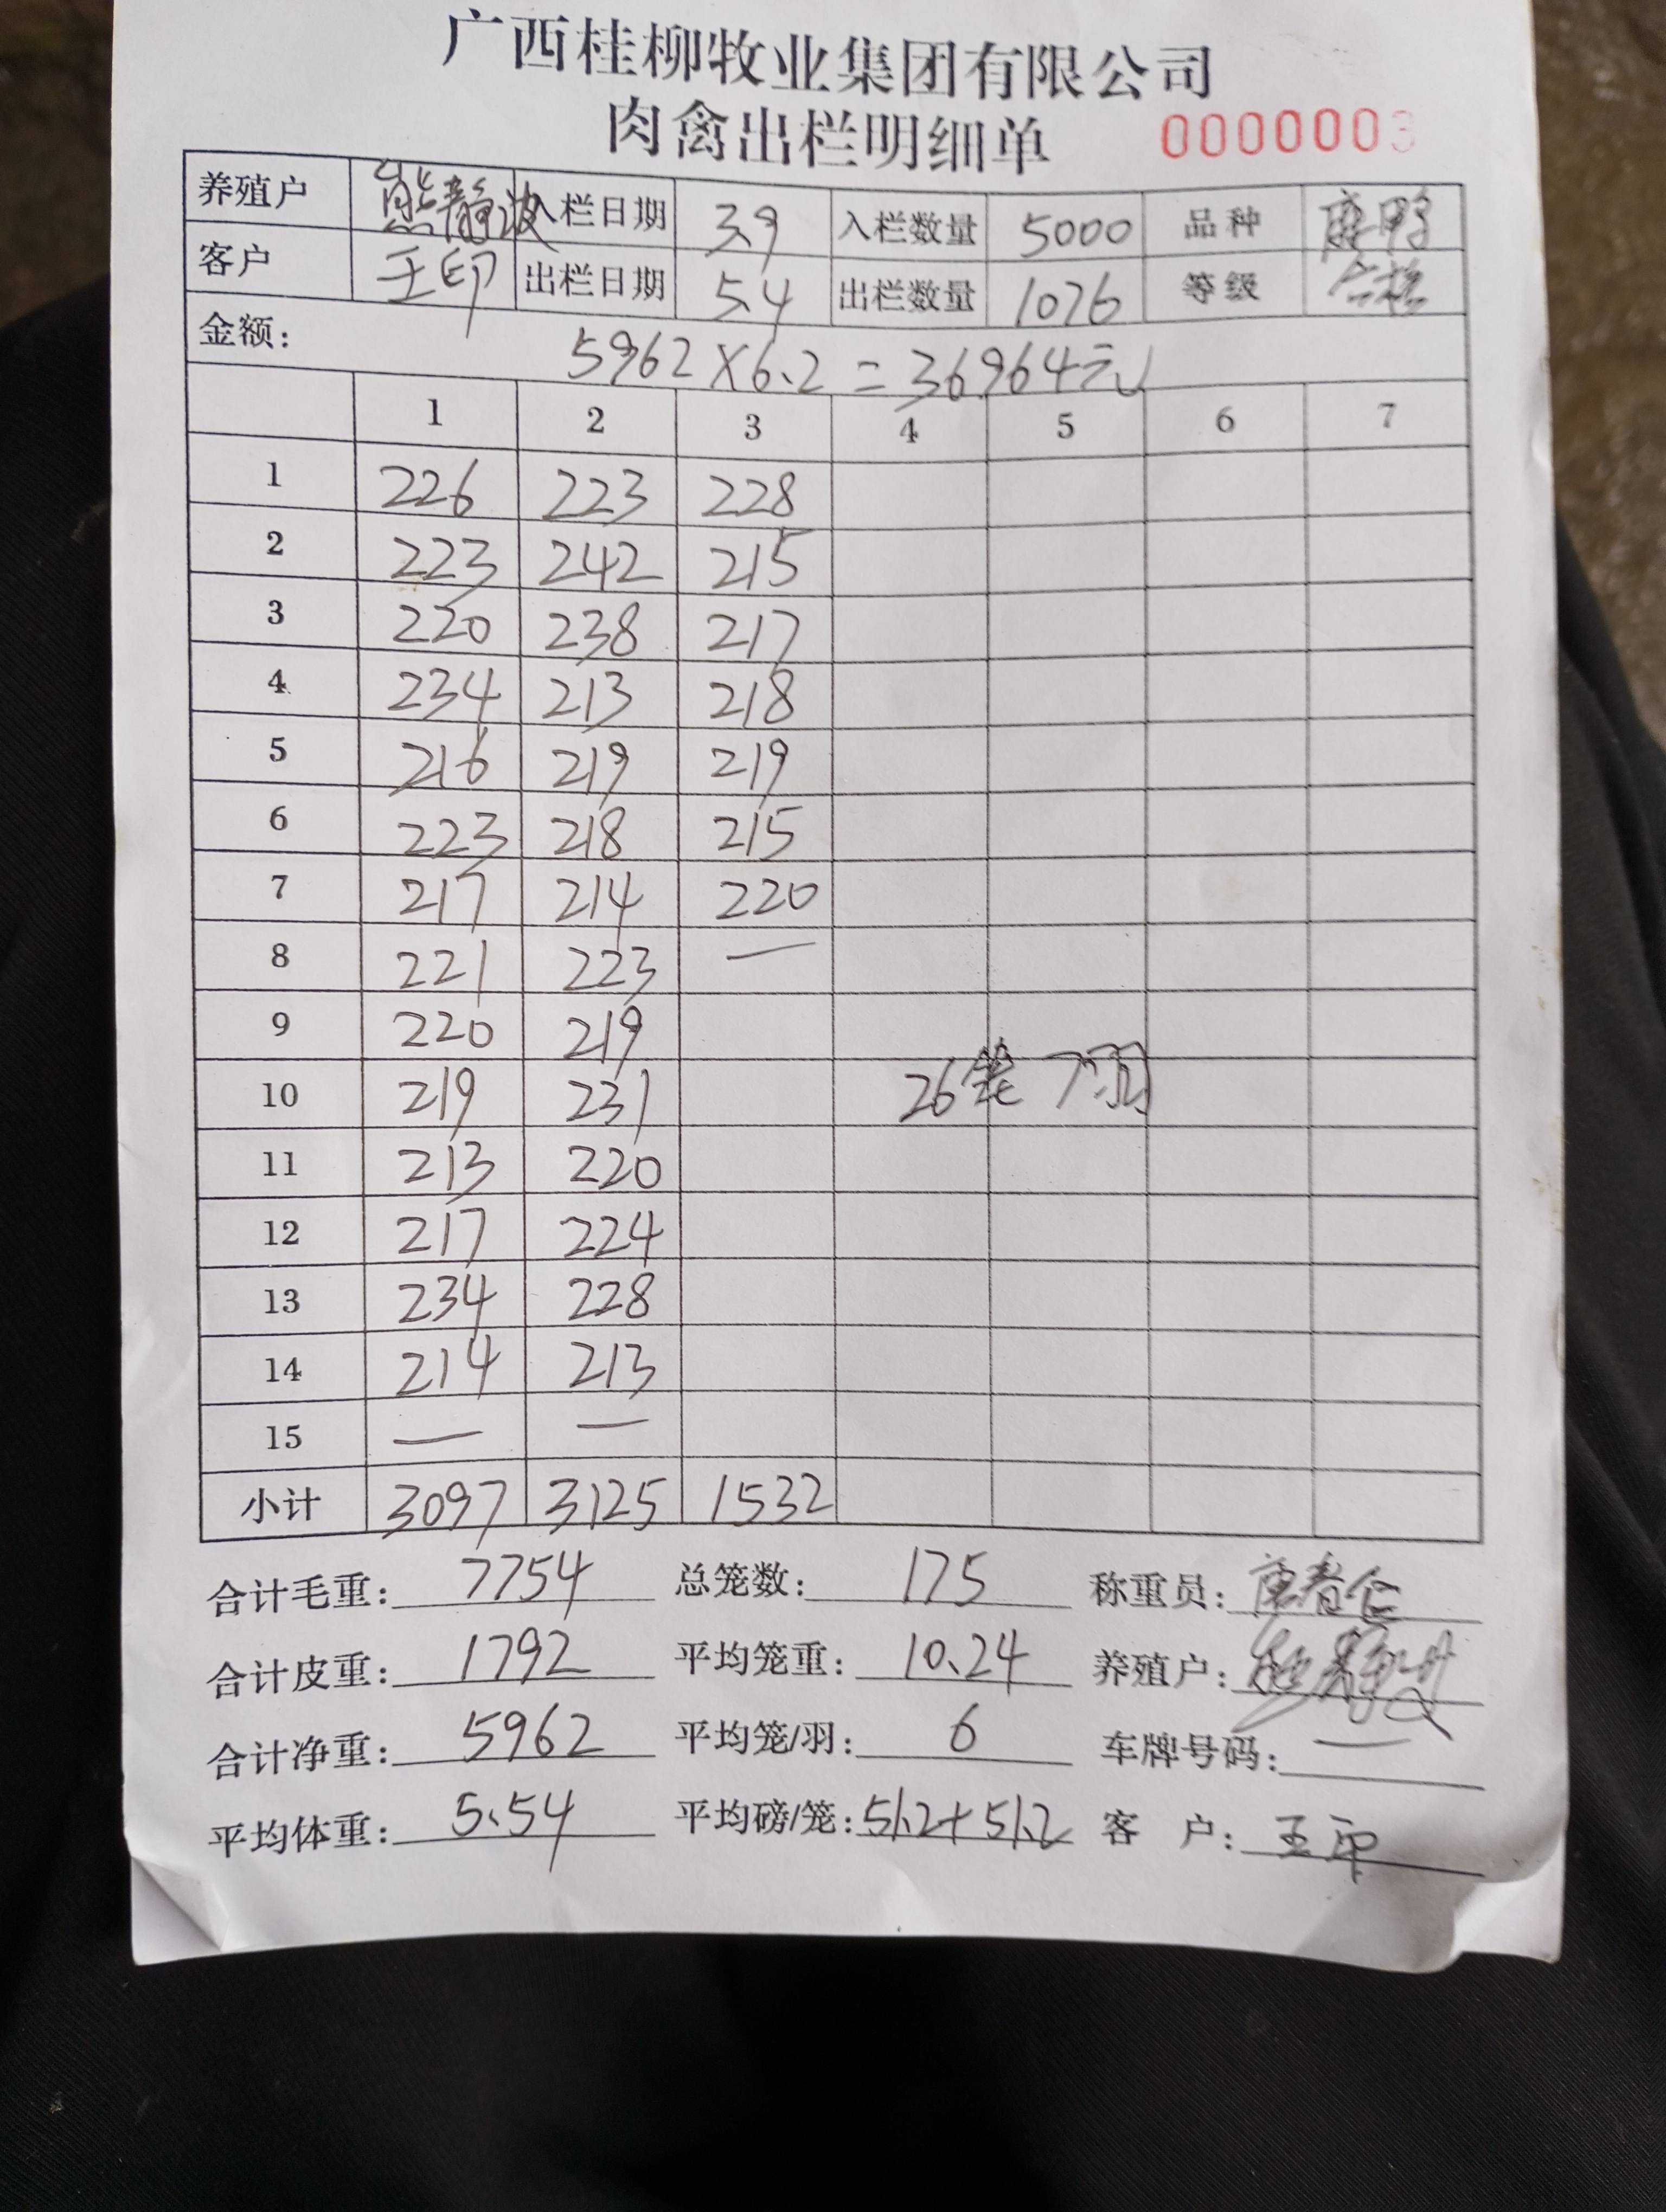 广西桂柳牧业集团有限公司
肉禽出栏明细单 0000003
养殖户 熊静波 入栏日期 3.9 入栏数量 5000 品种
客户 王印 出栏日期 5.4 出栏数量 1076 等级 合格
金额: 5962×6.2=36964元
1 2 3 4 5 6 7
1 226 223 228
2 223 242 215
3 220 238 217
4 234 213 218
5 216 219 219
6 223 218 215
7 217 214 220
8 221 223 —
9 220 219
10 219 231 26笼7羽
11 213 220
12 217 224
13 234 228
14 214 213
15 — —
小计 3097 3125 1532
合计毛重: 7754 总笼数: 175 称重员:
合计皮重: 1792 平均笼重: 10.24 养殖户:
合计净重: 5962 平均笼/羽: 6 车牌号码: —
平均体重: 5.54 平均磅/笼: 51.2+51.2 客户: 王印